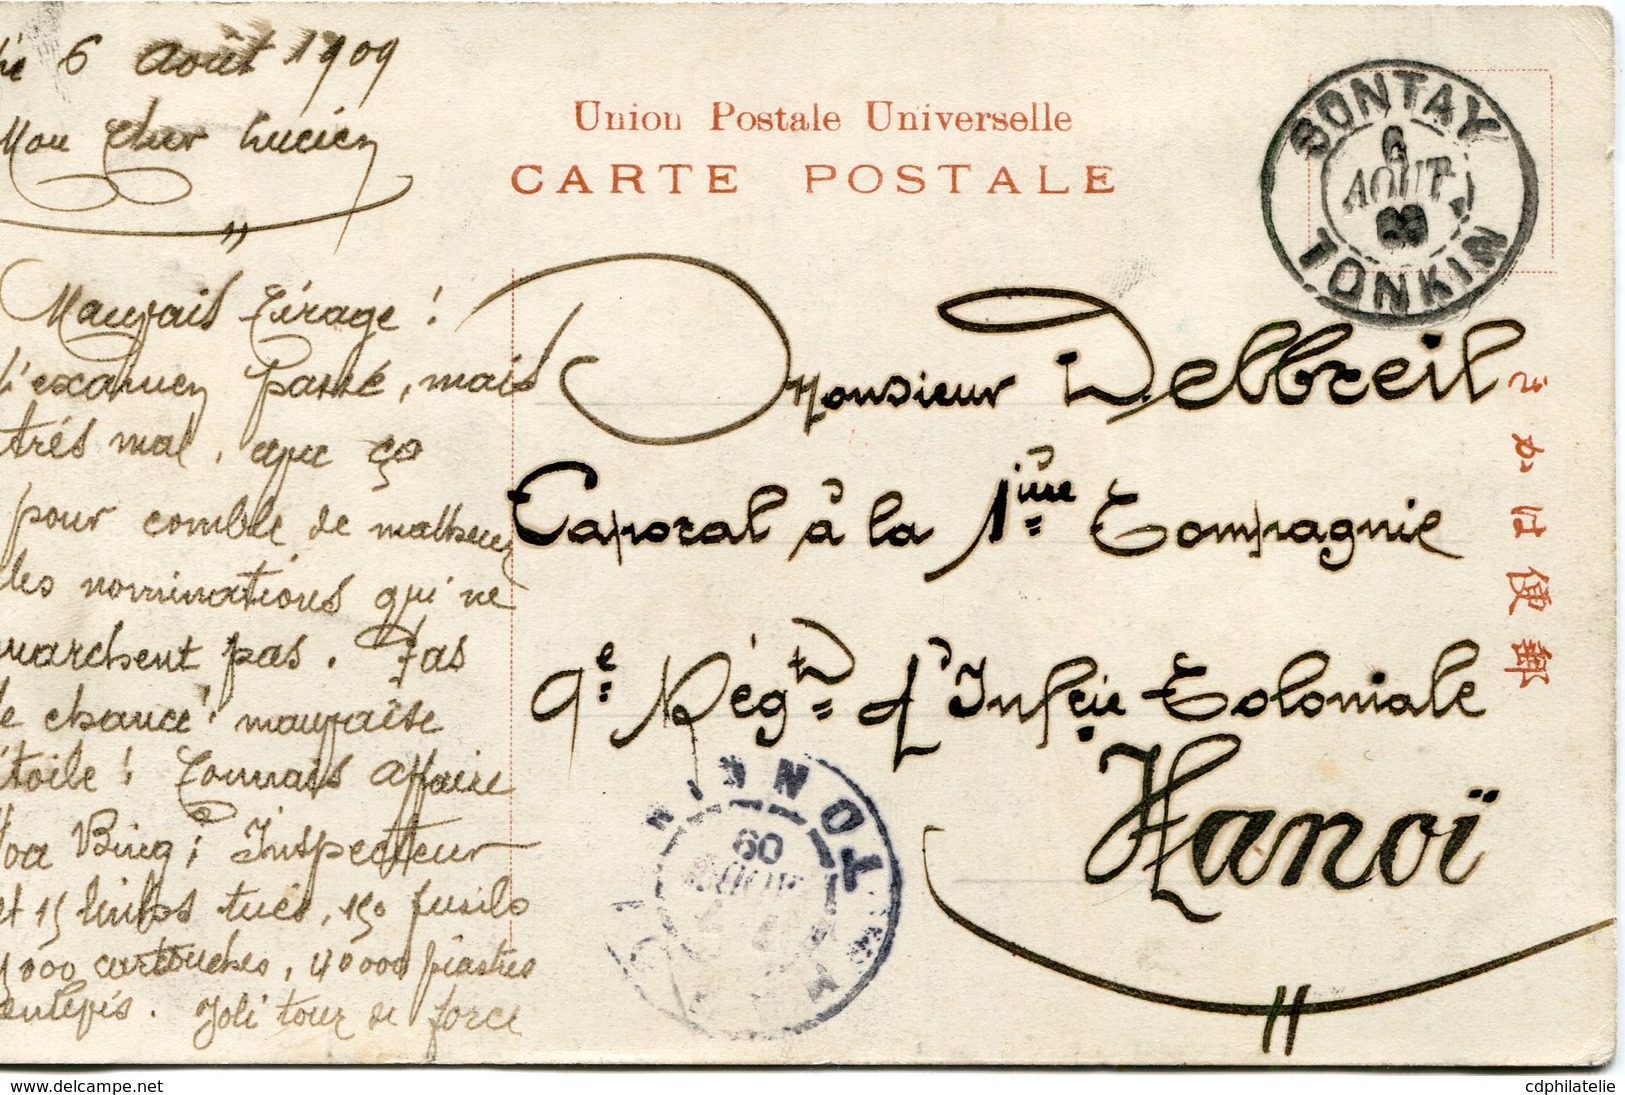 6 Août 1909
Mon cher Lucien
Mauvais tirage !
L'examen passé, mais
très mal, que ça
pour comble de malheur
les nominations qui ne
marchent pas. Pas
de chance ! mauvaise
étoile ! Connais affaire
Hoa Bing ; Inspecteur
et 15 linhs tués, 150 fusils
000 cartouches, 40000 piastres
enlevés. Joli tour de force
Union Postale Universelle
CARTE POSTALE
SONTAY
6
AOUT
09
TONKIN
Monsieur Delbreil
Caporal à la 1ière Compagnie
9e Régt d'Infie Coloniale
Hanoï
きかは便郵
TONKIN
09
visit www.delcampe.net
cdphilatelie